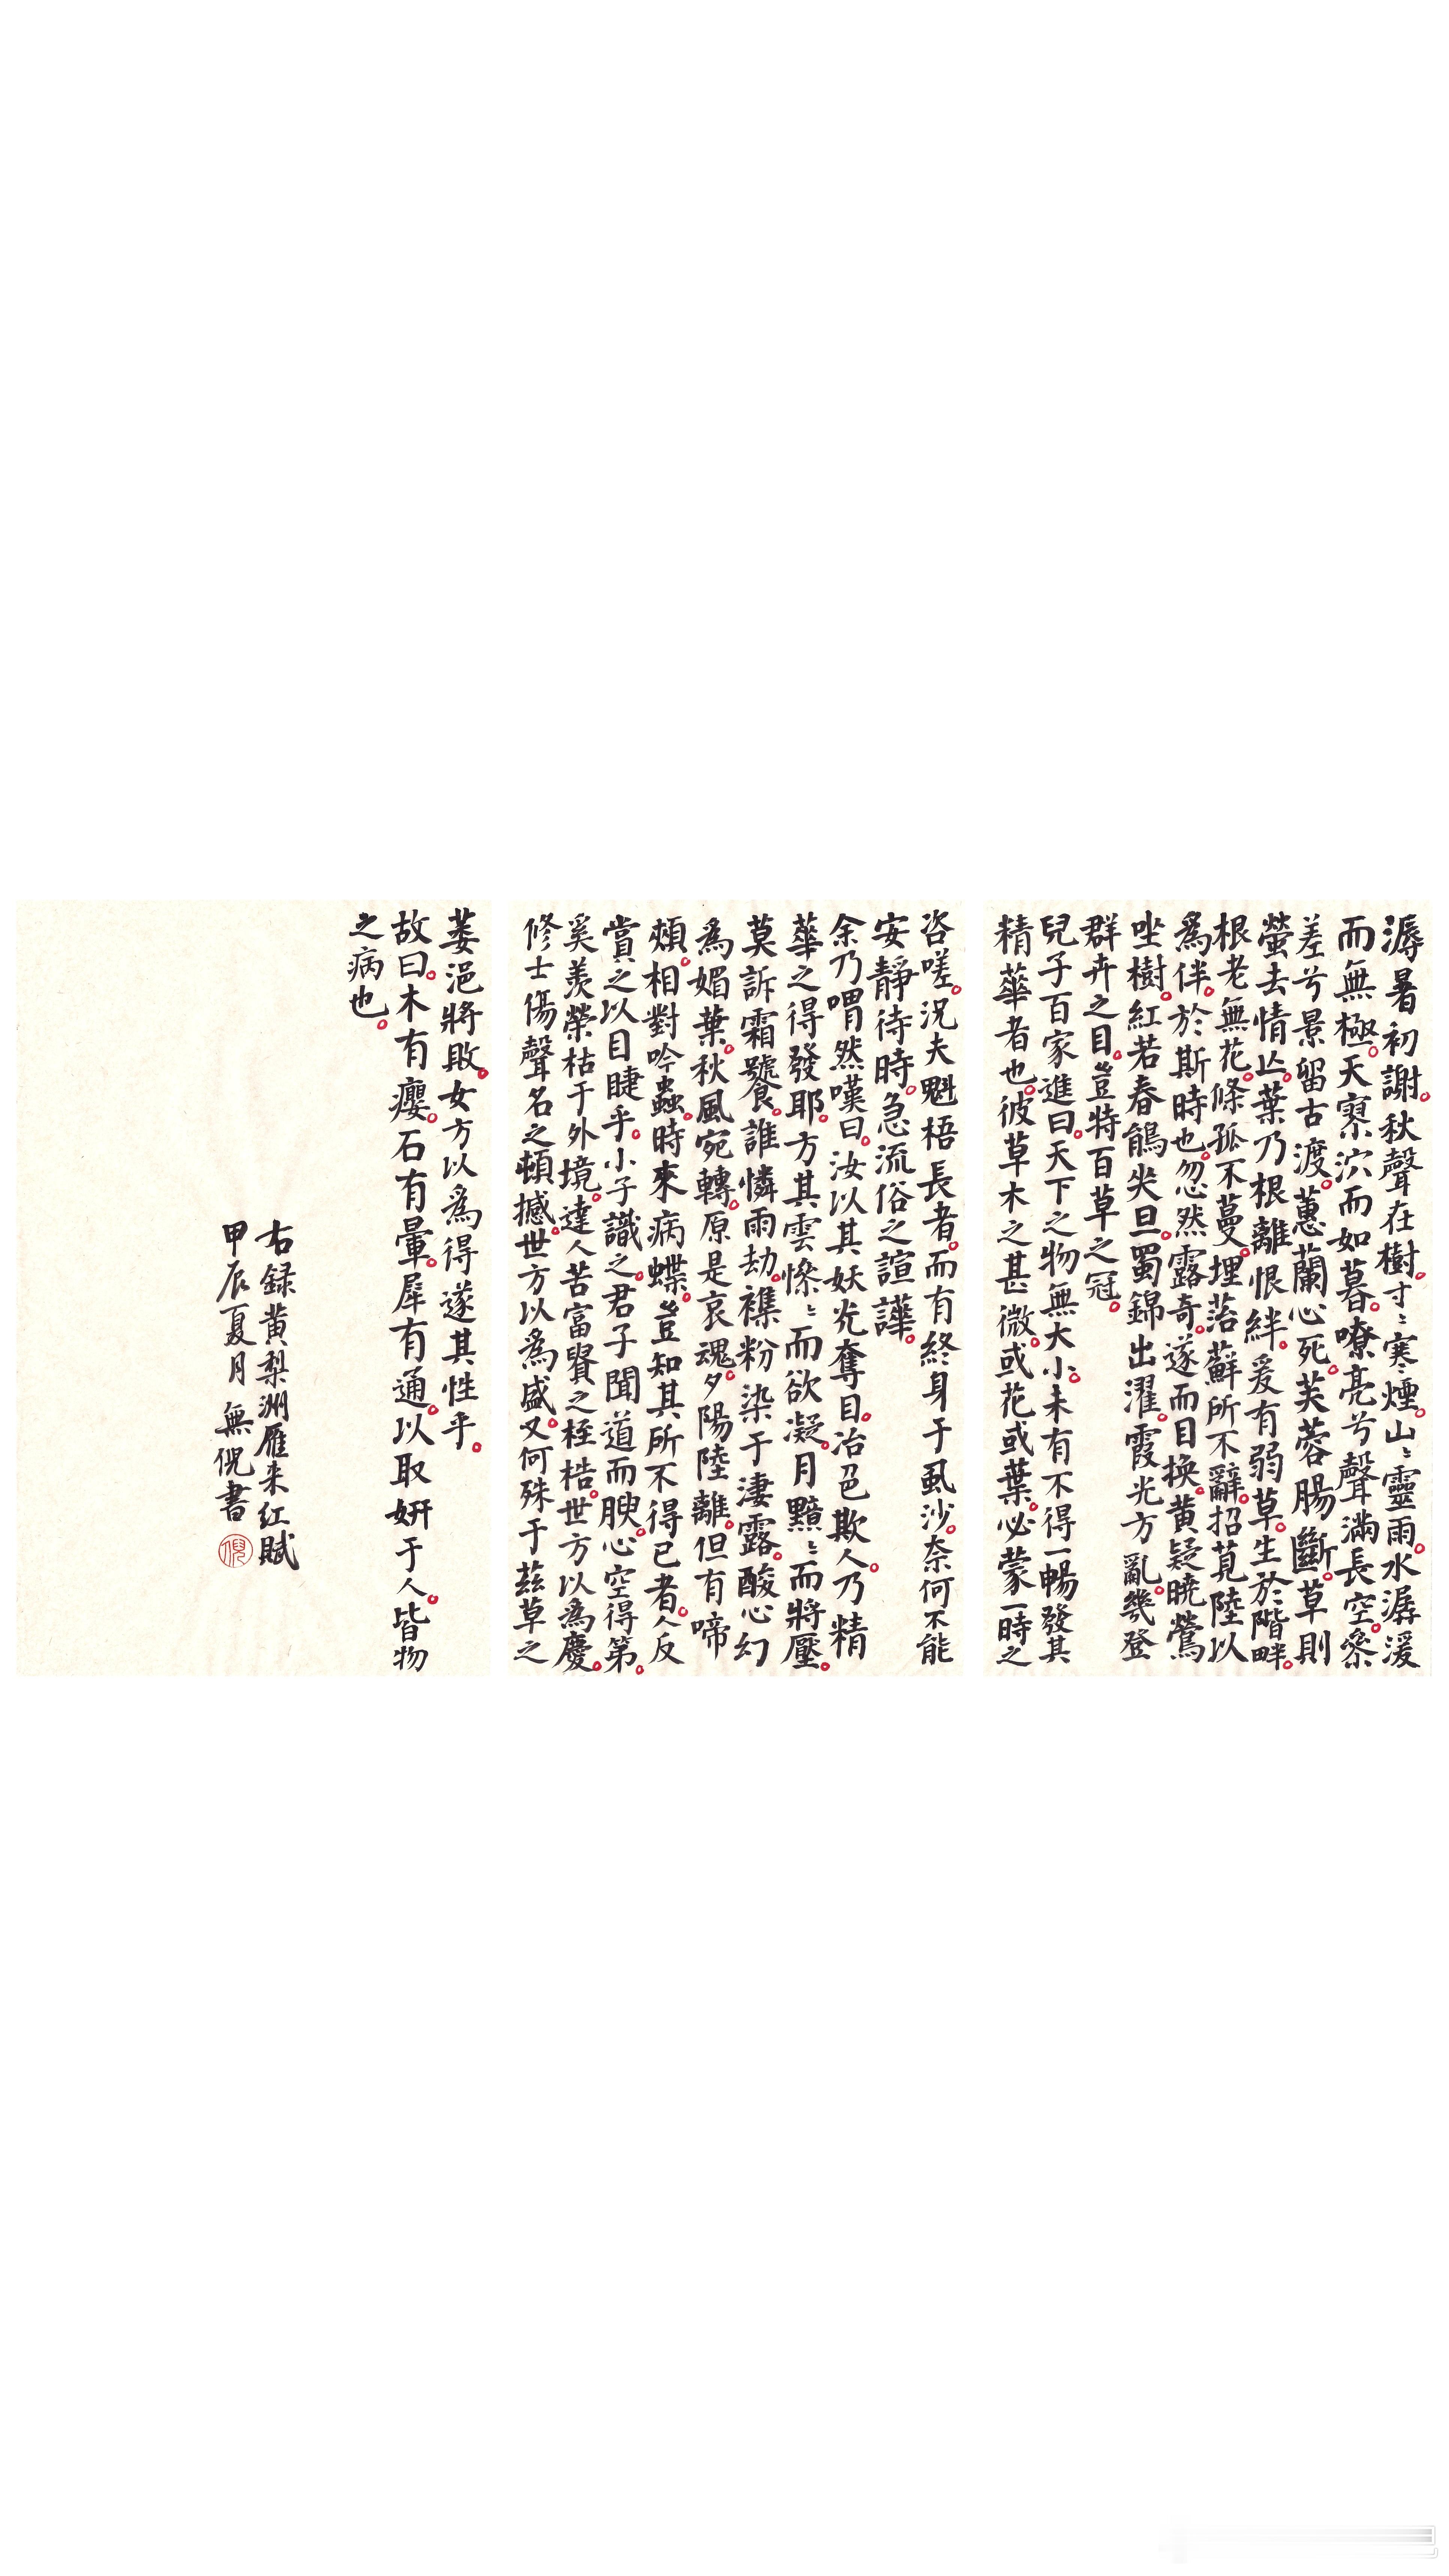 溽暑初謝。秋聲在樹。寸〻寒煙。山〻靈雨。水潺湲
而無極。天寥泬而如暮。嘹亮兮聲滿長空。參
差兮景留古渡。蕙蘭心死。芙蓉腸斷。草則
螢去情亾。葉乃根離恨絆。爰有弱草。生於階畔。
根老無花。條孤不蔓。埋落蘚所不辭。招莧陸以
爲伴。於斯時也。忽然露奇。遂而目換。黃疑曉鶯
坐樹。紅若春鵑哭旦。蜀錦出濯。霞光方亂。幾登
群卉之目。豈特百草之冠。
兒子百家進曰。天下之物無大小。未有不得一暢發其
精華者也。彼草木之甚微。或花或葉。必蒙一時之
咨嗟。況夫魁梧長者。而有終身于風沙。奈何不能
安靜待時。急流俗之諠譁。
余乃喟然嘆曰。汝以其妖光奪目。冶色欺人。乃精
華之得發耶。方其雲慘〻而欲凝。月黯〻而將壓。
莫訴霜饕。誰憐雨劫。襍粉染于淒露。酸心幻
為媚葉。秋風宛轉。原是哀魂。夕陽陸離。但有啼
頰。相對吟蟲。時來病蝶。豈知其所不得已者。人反
賞之以目睫乎。小子識之。君子聞道而腴。心空得第。
奚羨榮枯于外境。達人苦富貴之桎梏。世方以為慶。
修士傷聲名之頓撼。世方以為盛。又何殊于茲草之
萎浥將敗。女方以爲得遂其性乎。
故曰。木有癭。石有暈。犀有通。以取妍于人。皆物
之病也。
右録黄梨洲雁来红賦
甲辰夏月無倪書
倪